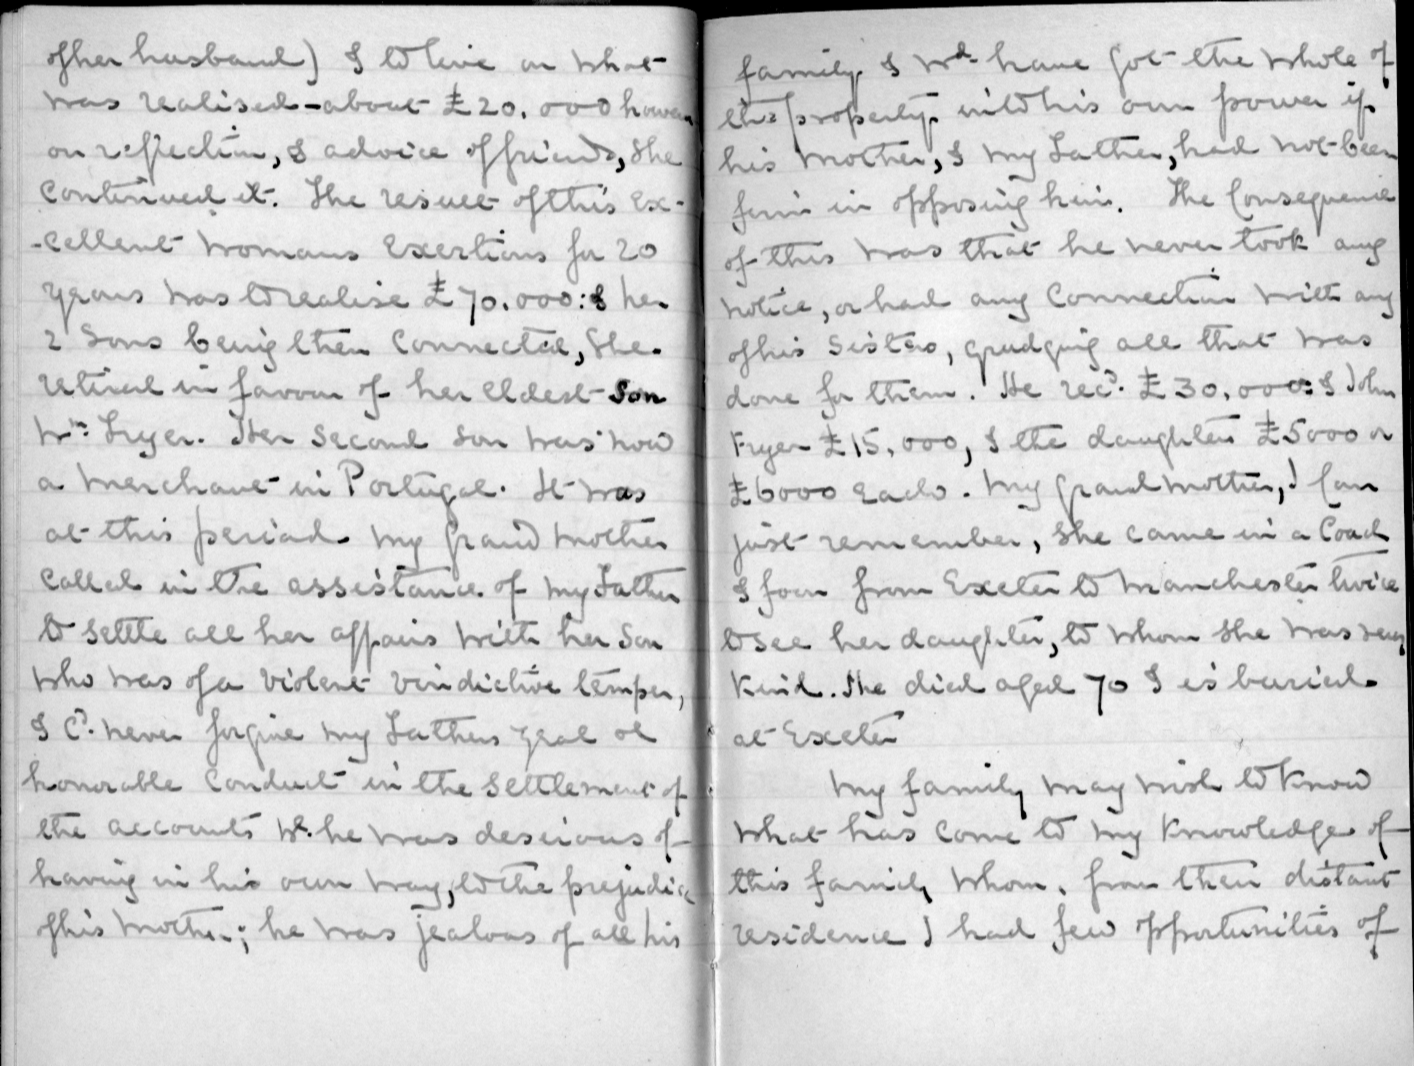 of her husband) & to live on what
was realised - about £20.000 however
on reflection, & advice of friends, she
continued it. The result of this ex-
-cellent womans exertions for 20
years was to realise £70.000: & her
2 Sons being then connected, she
retired in favour of her eldest Son
Wm. Fryer. Her second son was now
a merchant in Portugal. It was
at this period my Grand mother
called in the assistance of my Father
to settle all her affairs with her Son
who was of a violent vindictive temper,
& cd. never forgive my Fathers zeal &
honorable conduct in the settlement of
the accounts wh. he was desirous of
having in his own way, to the prejudice
of his mother; he was jealous of all his
family & wd. have got the whole of
the property into his own power if
his mother, & my Father, had not been
firm in opposing him. The consequence
of this was that he never took any
notice, or had any connection with any
of his Sisters, grudging all that was
done for them. He recd. £30.000: & John
Fryer £15.000, & the daughters £5000 or
£6000 each. My Grand mother, I can
just remember, she came in a Coach
& four from Exeter to Manchester twice
to see her daughter, to whom she was very
kind. She died aged 70 & is buried
at Exeter
My family may wish to know
what has come to my knowledge of
this family whom, from their distant
residence I had few opportunities of